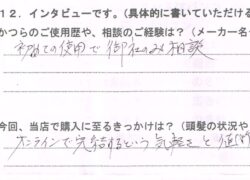 12. インタビューです。(具体的に書いていただける
かつらのご使用歴や、相談のご経験は?(メーカー名
初めての使用で御社のみ相談
今回、当店で購入に至るきっかけは?(頭髪の状況や
オンラインで完結するという気軽さと値段